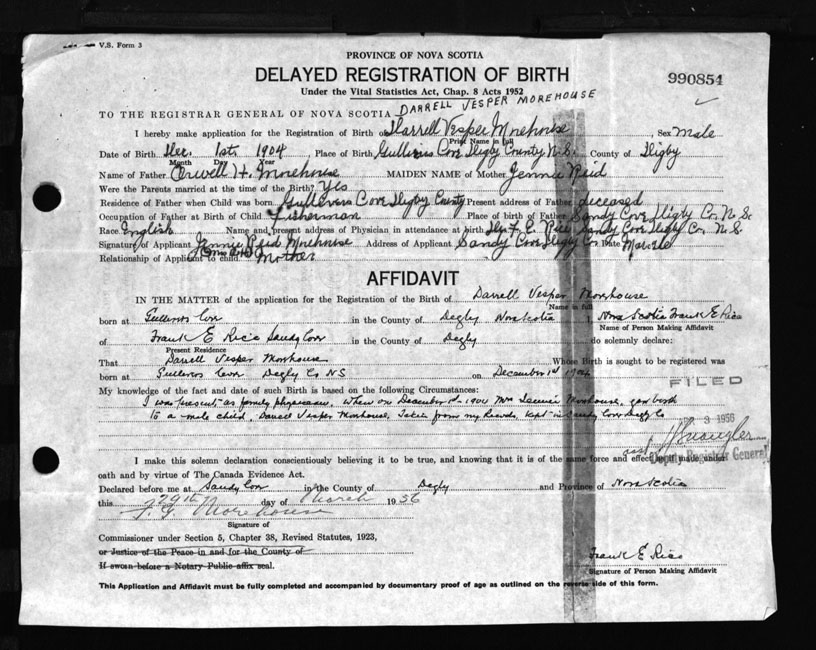 V.S. Form 3
PROVINCE OF NOVA SCOTIA
DELAYED REGISTRATION OF BIRTH
990854
Under the Vital Statistics Act, Chap. 8 Acts 1952
TO THE REGISTRAR GENERAL OF NOVA SCOTIA DARRELL VESPER MOREHOUSE
I hereby make application for the Registration of Birth of Darrell Vesper Morehouse, Sex Male
Print Name in full
Date of Birth Dec. 1st 1904 Place of Birth Gullivers Cove Digby County N.S. County of Digby
Month Day Year
Name of Father H. Morehouse MAIDEN NAME of Mother Jennie Reid
Were the Parents married at the time of the Birth? Yes
Residence of Father when Child was born Gullivers Cove Digby County Present address of Father deceased
Occupation of Father at Birth of Child Fisherman Place of birth of Father Sandy Cove Digby Co. N.S.
Race English Name and present address of Physician in attendance at birth Dr. F. E. Rice Sandy Cove Digby Co. N.S.
Signature of Applicant Jennie Reid Morehouse Address of Applicant Sandy Cove Digby Co. Date
Relationship of Applicant to child Mother
AFFIDAVIT
IN THE MATTER of the application for the Registration of the Birth of Darrell Vesper Morehouse
Name in full
born at Gullivers Cove in the County of Digby Nova Scotia I, Nova Scotia Frank E Rice
Name of Person Making Affidavit
of Frank E Rice Sandy Cove in the County of Digby do solemnly declare:
Present Residence
That Darrell Vesper Morehouse Whose Birth is sought to be registered was
born at Gullivers Cove Digby Co NS on December 1st 1904
FILED
My knowledge of the fact and date of such Birth is based on the following Circumstances:
I was present as family physician, when on December 1st 1904 Mrs Jennie Morehouse, gave birth
to a male child, Darrell Vesper Morehouse, Taken from my Records, kept in Sandy Cove Digby Co
3 1956
Deputy Registrar General
I make this solemn declaration conscientiously believing it to be true, and knowing that it is of the same force and effect as if made under
oath and by virtue of The Canada Evidence Act.
Declared before me at Sandy Cove in the County of Digby and Province of Nova Scotia
this 29th day of March 1956
Morehouse
Signature of
Commissioner under Section 5, Chapter 38, Revised Statutes, 1923,
or Justice of the Peace in and for the County of
If sworn before a Notary Public affix seal.
Frank E Rice
Signature of Person Making Affidavit
This Application and Affidavit must be fully completed and accompanied by documentary proof of age as outlined on the reverse side of this form.